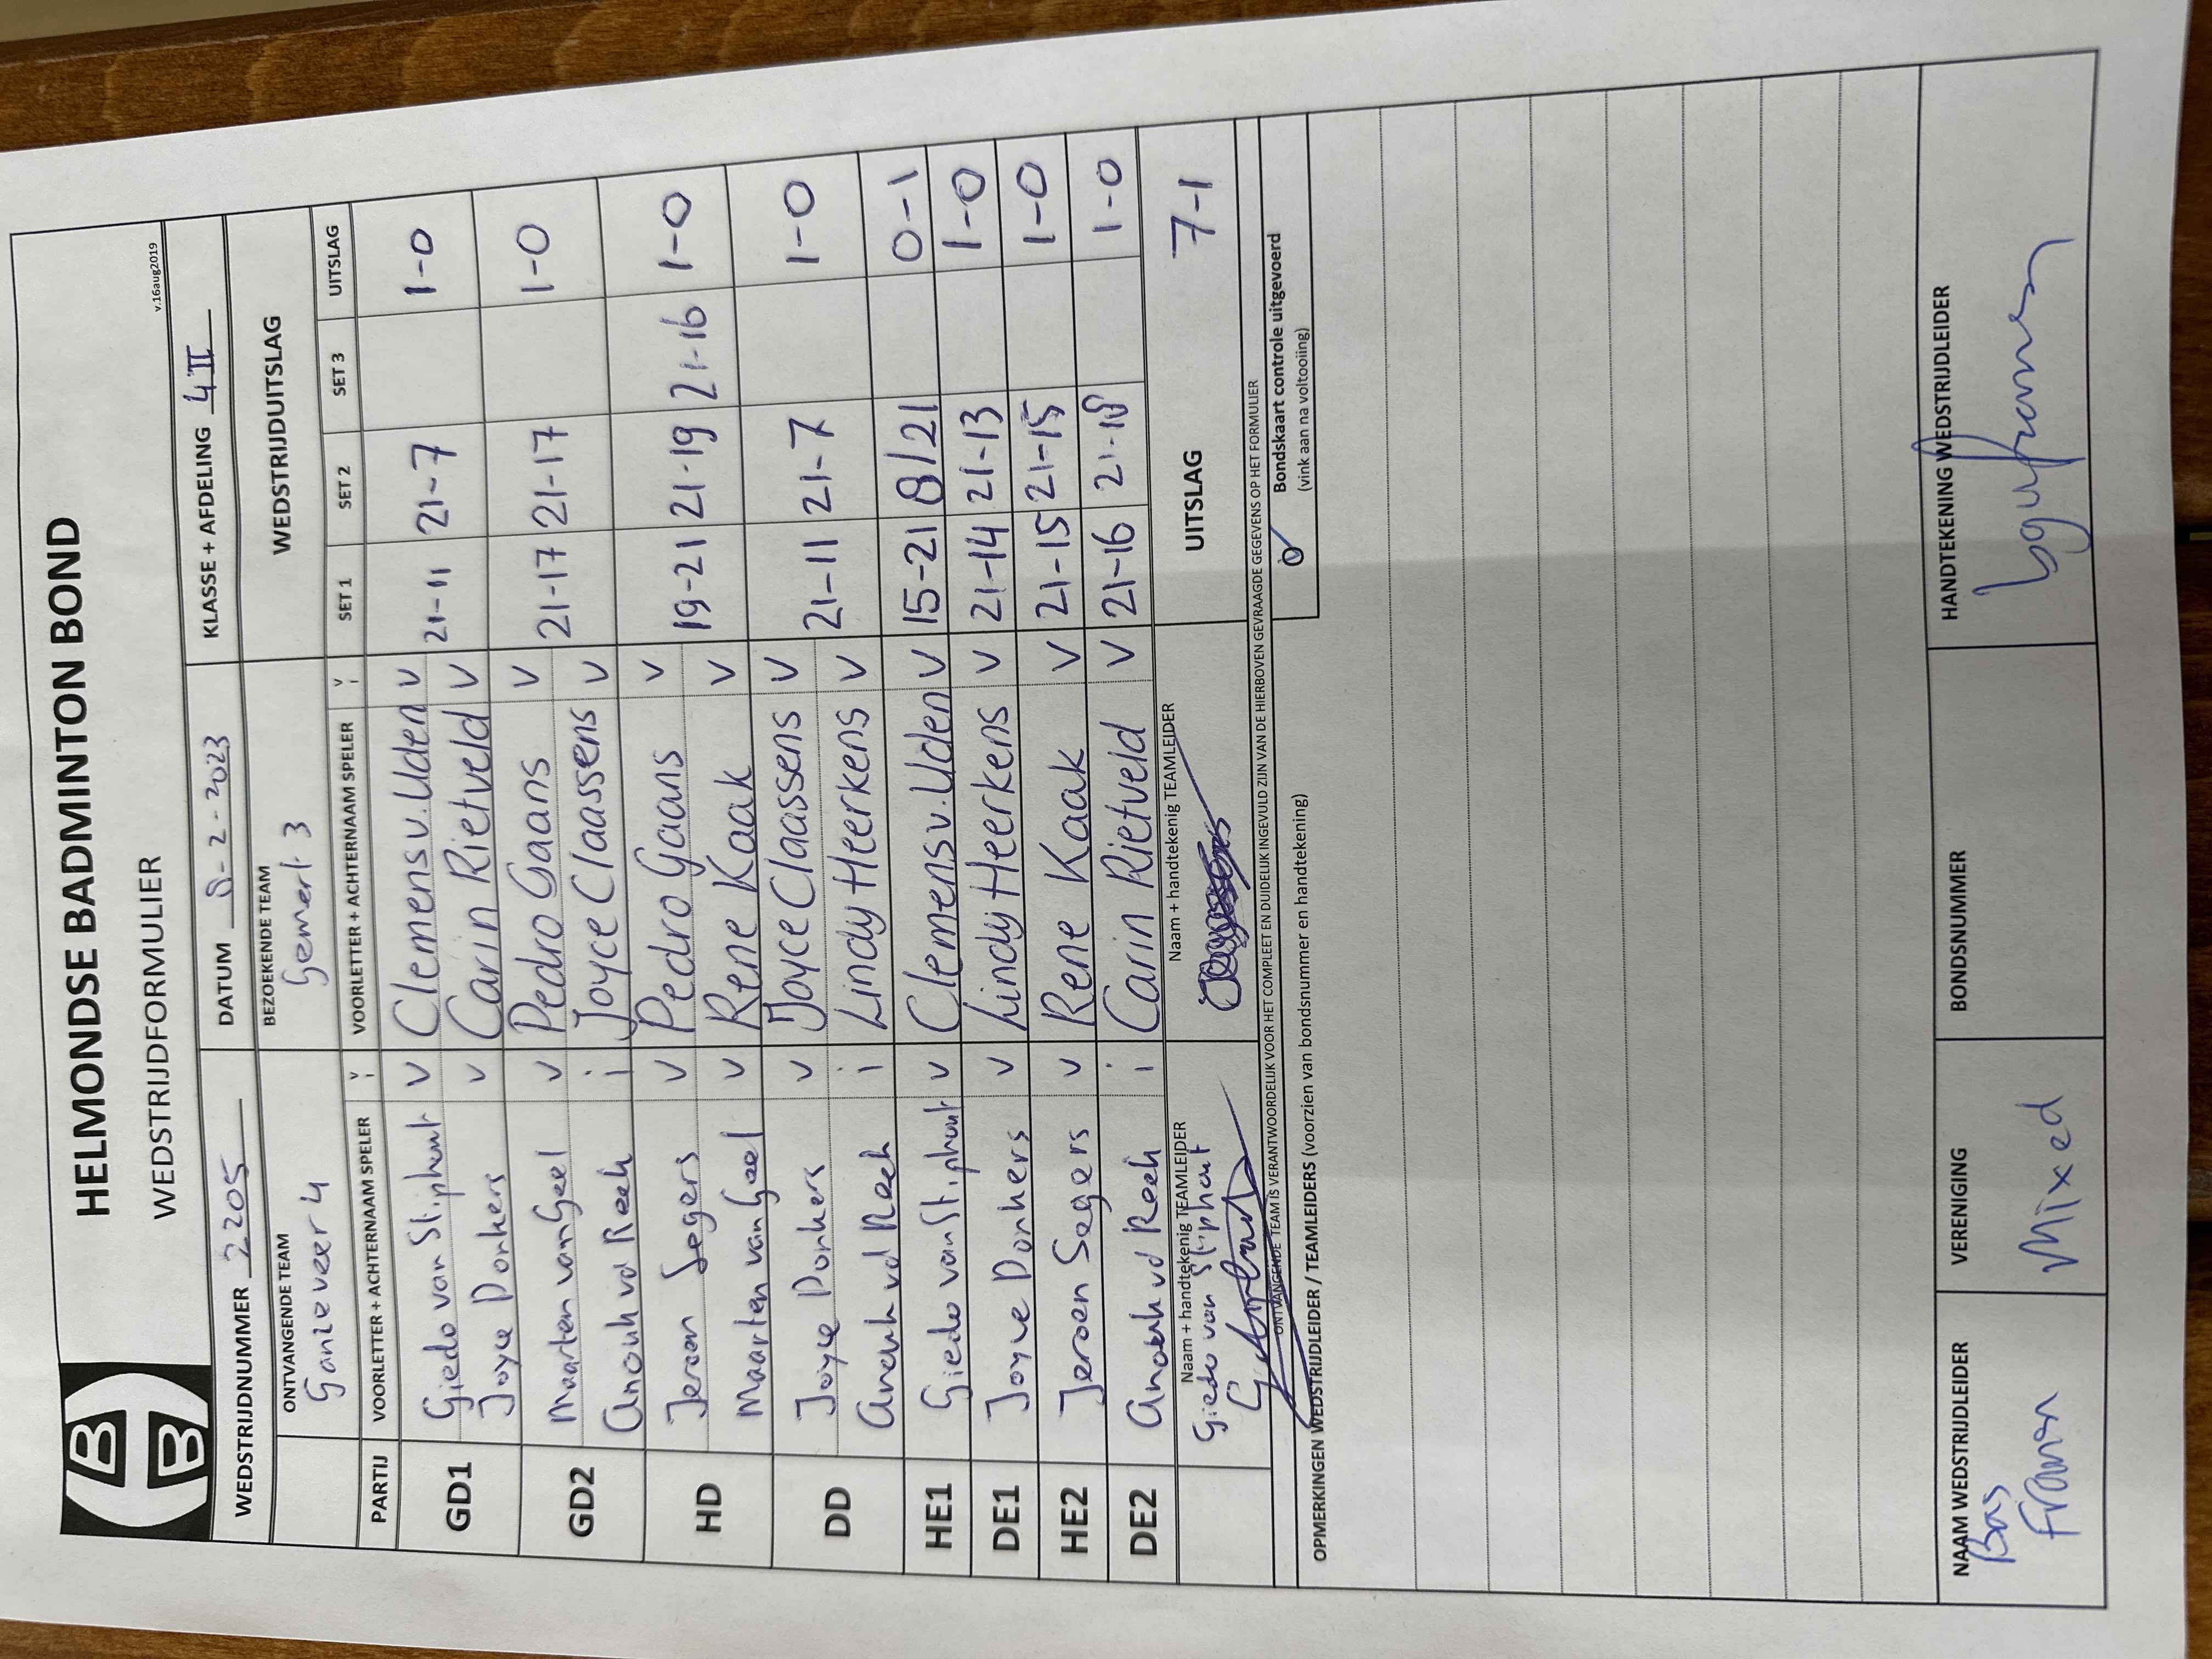 HELMONDSE BADMINTON BOND
WEDSTRIJDFORMULIER
v.16aug2019
WEDSTRIJDNUMMER 2205 DATUM 8-2-2023 KLASSE + AFDELING 4II
ONTVANGENDE TEAM BEZOEKENDE TEAM WEDSTRIJDUITSLAG
Ganzeveer 4 Gemert 3
PARTIJ VOORLETTER + ACHTERNAAM SPELER V/I VOORLETTER + ACHTERNAAM SPELER V/I SET 1 SET 2 SET 3 UITSLAG
GD1 Giedo van Stiphout v Clemens v. Uden v 21-11 21-7 1-0
Joyce Donkers v Carin Rietveld v
GD2 Maarten van Geel v Pedro Gaans v 21-17 21-17 1-0
Anouk vd Reek i Joyce Claassens v
HD Jeroen Segers v Pedro Gaans v 19-21 21-19 21-16 1-0
Maarten van Geel v Rene Kaak v
DD Joyce Donkers v Joyce Claassens v 21-11 21-7 1-0
Anouk vd Reek i Lindy Heerkens v
HE1 Giedo van Stiphout v Clemens v. Uden v 15-21 8/21 0-1
DE1 Joyce Donkers v Lindy Heerkens v 21-14 21-13 1-0
HE2 Jeroen Segers v Rene Kaak v 21-15 21-15 1-0
DE2 Anouk vd Reek i Carin Rietveld v 21-16 21-18 1-0
Naam + handtekenig TEAMLEIDER Naam + handtekenig TEAMLEIDER UITSLAG 7-1
Giedo van Stiphout
ONTVANGENDE TEAM IS VERANTWOORDELIJK VOOR HET COMPLEET EN DUIDELIJK INGEVULD ZIJN VAN DE HIERBOVEN GEVRAAGDE GEGEVENS OP HET FORMULIER
Bondskaart controle uitgevoerd
(vink aan na voltooiing)
OPMERKINGEN WEDSTRIJDLEIDER / TEAMLEIDERS (voorzien van bondsnummer en handtekening)
NAAM WEDSTRIJDLEIDER VERENIGING BONDSNUMMER HANDTEKENING WEDSTRIJDLEIDER
Bas Mixed
Fransen